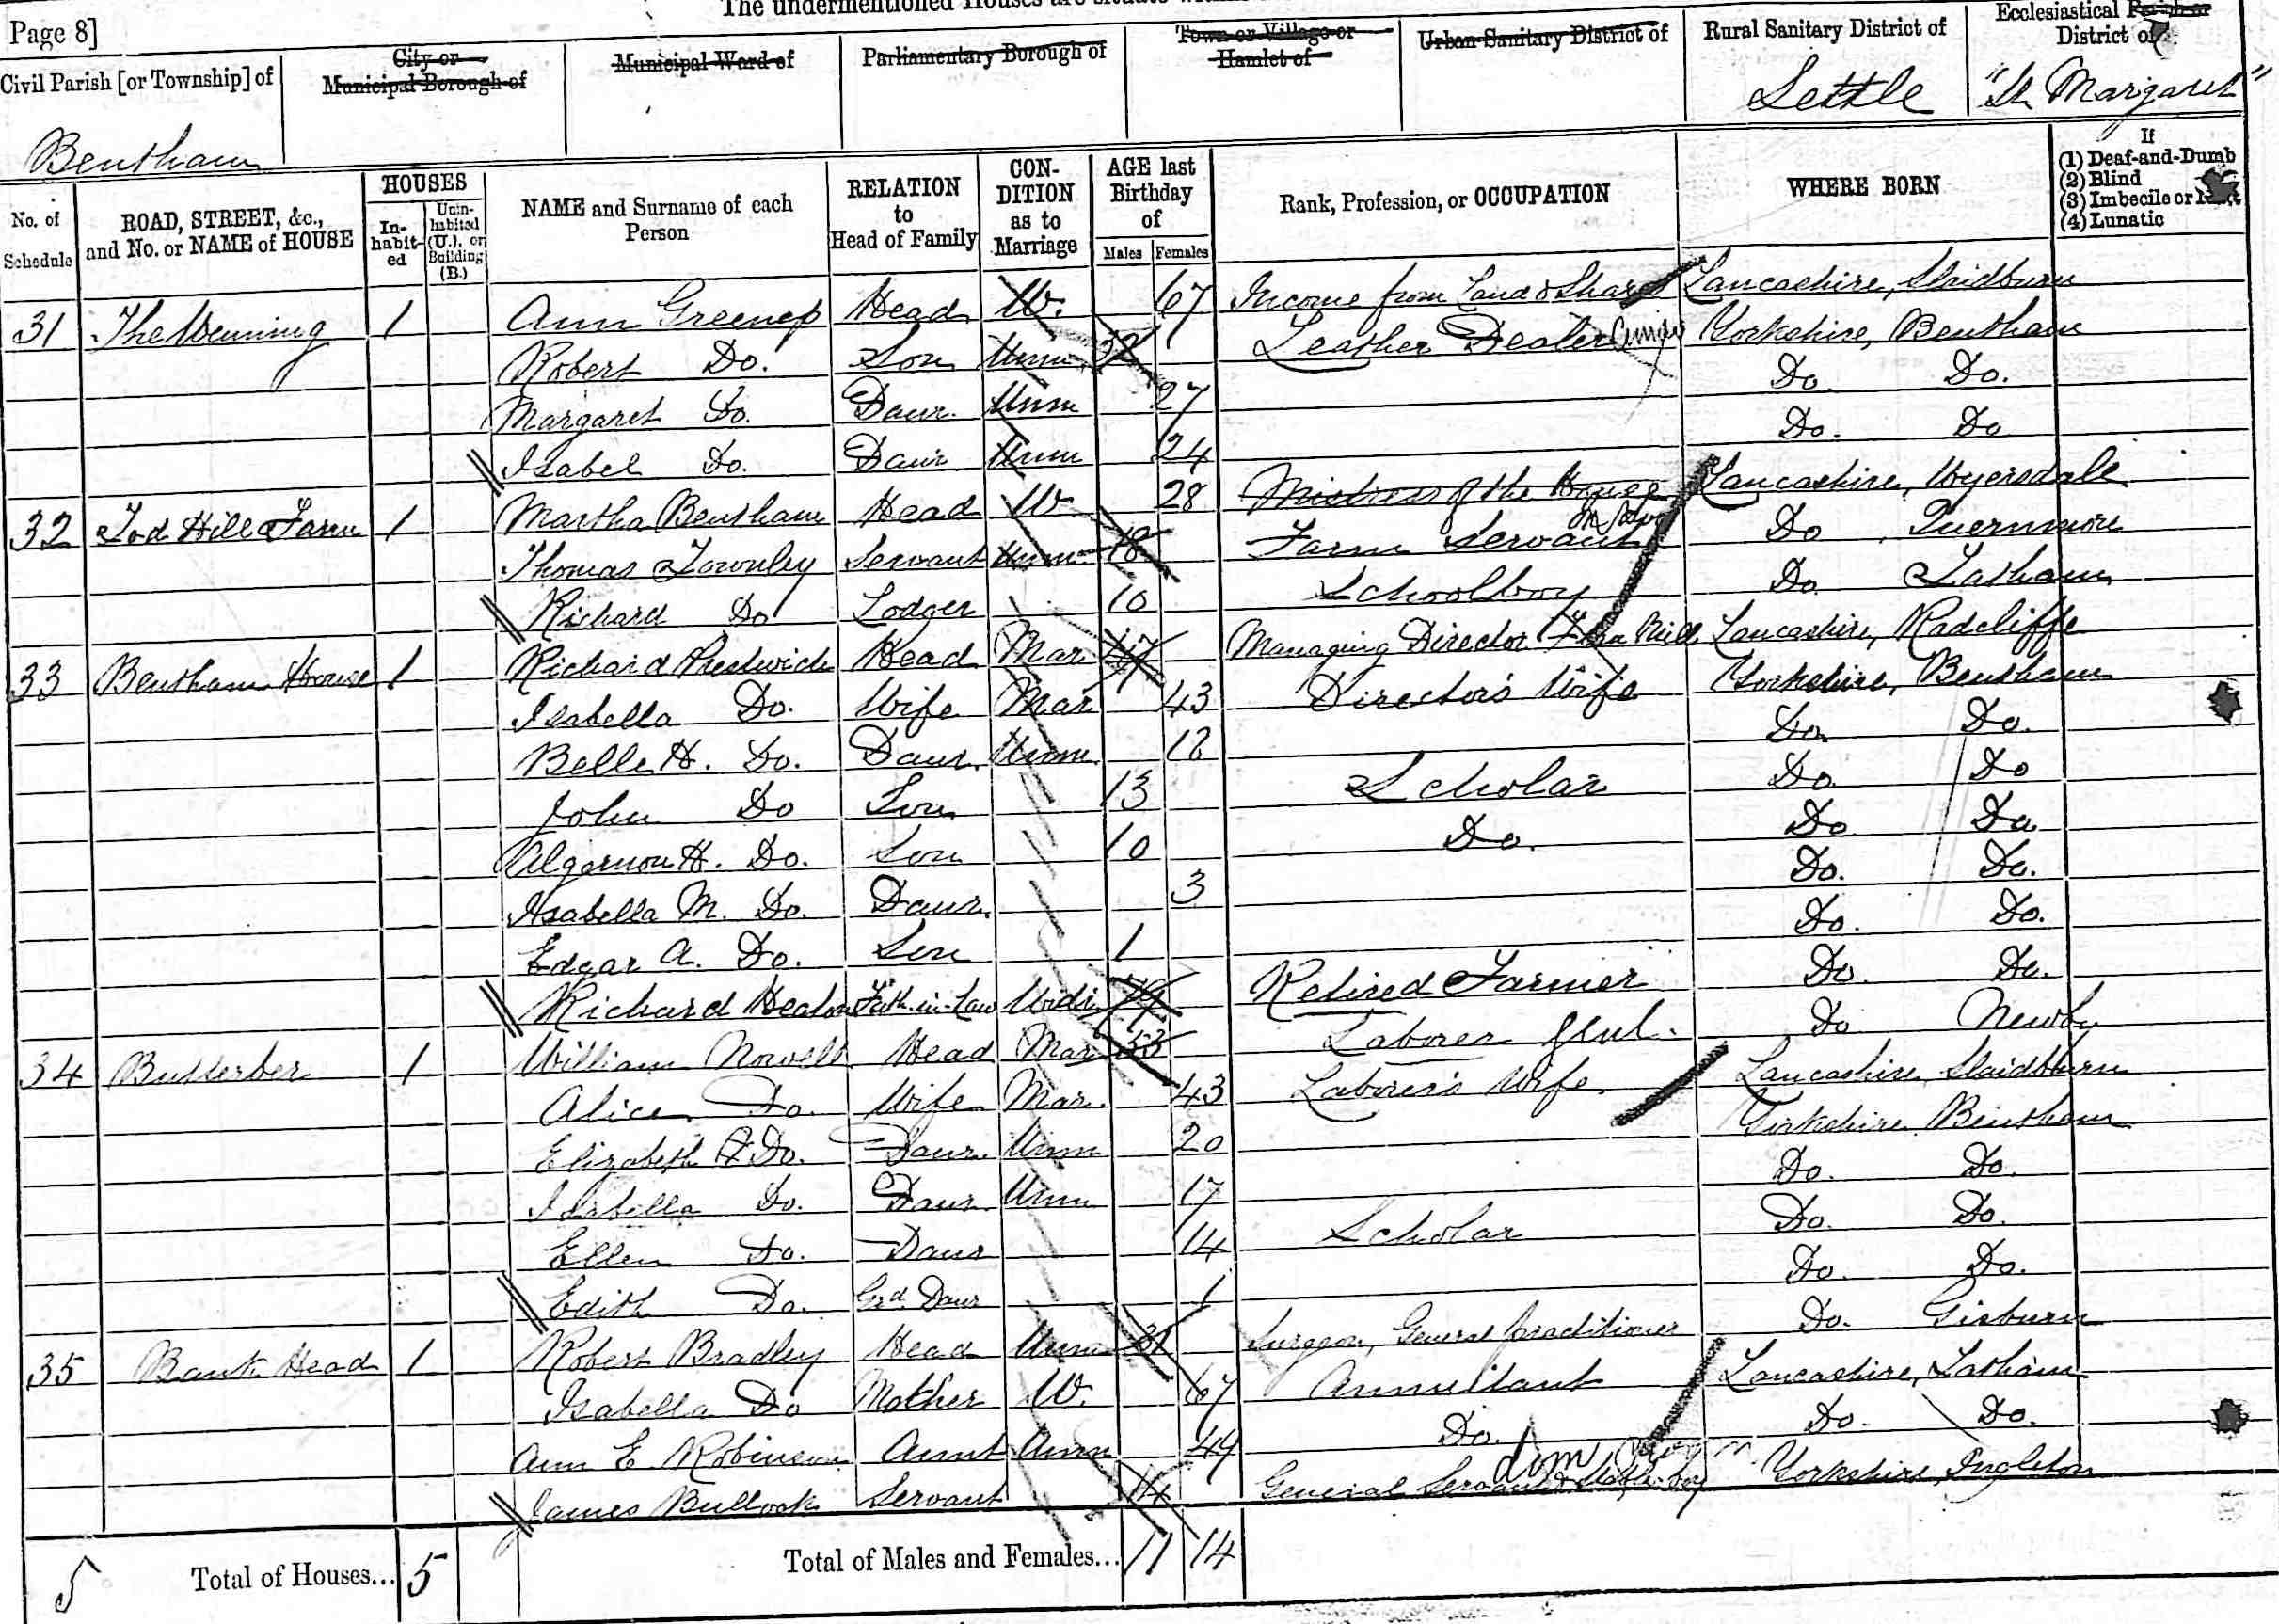 The undermentioned Houses are situate
Page 8]
Civil Parish [or Township] of
City or Municipal Borough of
Municipal Ward of
Parliamentary Borough of
Town or Village or Hamlet of
Urban Sanitary District of
Rural Sanitary District of
Ecclesiastical Parish or District of
Bentham
Settle
"St Margaret"
No. of Schedule
ROAD, STREET, &c., and No. or NAME of HOUSE
HOUSES
Inhabited
Uninhabited (U.), or Building (B.)
NAME and Surname of each Person
RELATION to Head of Family
CONDITION as to Marriage
AGE last Birthday of
Males Females
Rank, Profession, or OCCUPATION
WHERE BORN
If
(1) Deaf-and-Dumb
(2) Blind
(3) Imbecile or Idiot
(4) Lunatic
31 The Wenning 1 Ann Greenep Head W. 67 Income from Land & Shares Lancashire, Slaidburn
Robert Do. Son Unm 32 Leather Dealer Yorkshire, Bentham
Margaret Do. Daur. Unm 27 Do. Do.
Isabel Do. Daur Unm 24 Do. Do
32 Tod Hill Farm 1 Martha Bentham Head W 28 Mistress of the House Lancashire, Wyersdale
Thomas Townley Servant Unm 18 Farm Servant Do Quernmore
Richard Do Lodger 10 Schoolboy Do Tatham
33 Bentham House 1 Richard Prestwich Head Mar 47 Managing Director Mill Lancashire, Radcliffe
Isabella Do. Wife Mar 43 Director's Wife Yorkshire, Bentham
Belle H. Do. Daur. Unm. 18 Do. Do.
John Do Son 13 Scholar Do. Do
Algernon H. Do. Son 10 Do. Do Do
Isabella M. Do. Daur. 3 Do. Do.
Edgar A. Do. Son 1 Do. Do.
Richard Heaton Fath-in-Law Widr 79 Retired Farmer Do. Do.
34 Butterber 1 William Nowell Head Mar 53 Laborer Genl. Do Newby
Alice Do. Wife Mar. 43 Laborer's Wife. Lancashire, Slaidburn
Elizabeth Do. Daur. Unm 20 Yorkshire Bentham
Isabella Do. Daur. Unm 17 Do. Do.
Ellen Do. Daur 14 Scholar Do. Do.
Edith Do. Grd. Daur 1 Do. Do.
35 Bank Head 1 Robert Bradley Head Unm 31 Surgeon, General practitioner Do. Gisburn
Isabella Do Mother W. 67 Annuitant Lancashire, Tatham
Ann E. Robinson Aunt Unm 49 Do. Do. Do.
James Bullock Servant 14 General Servant & Stable boy Yorkshire, Ingleton
5 Total of Houses... 5 Total of Males and Females... 11 14